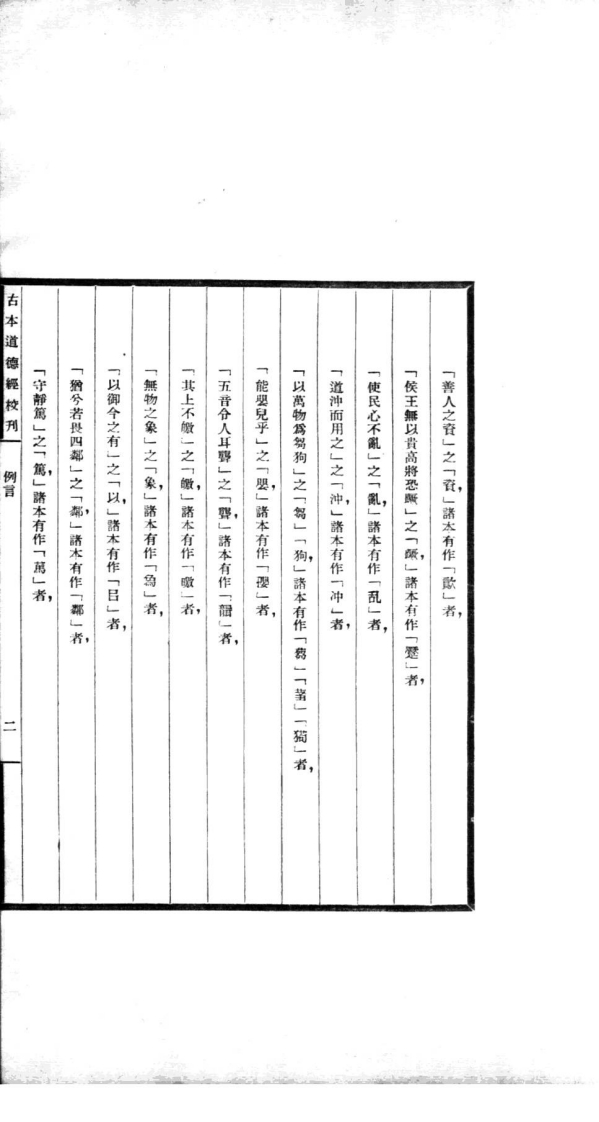 「善人之資」之「資，」諸本有作「　」者，
「侯王無以貴高將恐蹶」之「蹶，」諸本有作「蹷」者，
「使民心不亂」之「亂，」諸本有作「乱」者，
「道沖而用之」之「沖，」諸本有作「冲」者，
「以萬物爲芻狗」之「芻」「狗，」諸本有作「　」「　」「　」者，
「能嬰兒乎」之「嬰，」諸本有作「　」者，
「五音令人耳聾」之「聾，」諸本有作「　」者，
「其上不皦」之「皦，」諸本有作「曒」者，
「無物之象」之「象，」諸本有作「　」者，
「以御今之有」之「以，」諸本有作「㠯」者，
「猶兮若畏四鄰」之「鄰，」諸本有作「　」者，
「守靜篤」之「篤，」諸本有作「　」者，
古本道德經校刊　例言　二